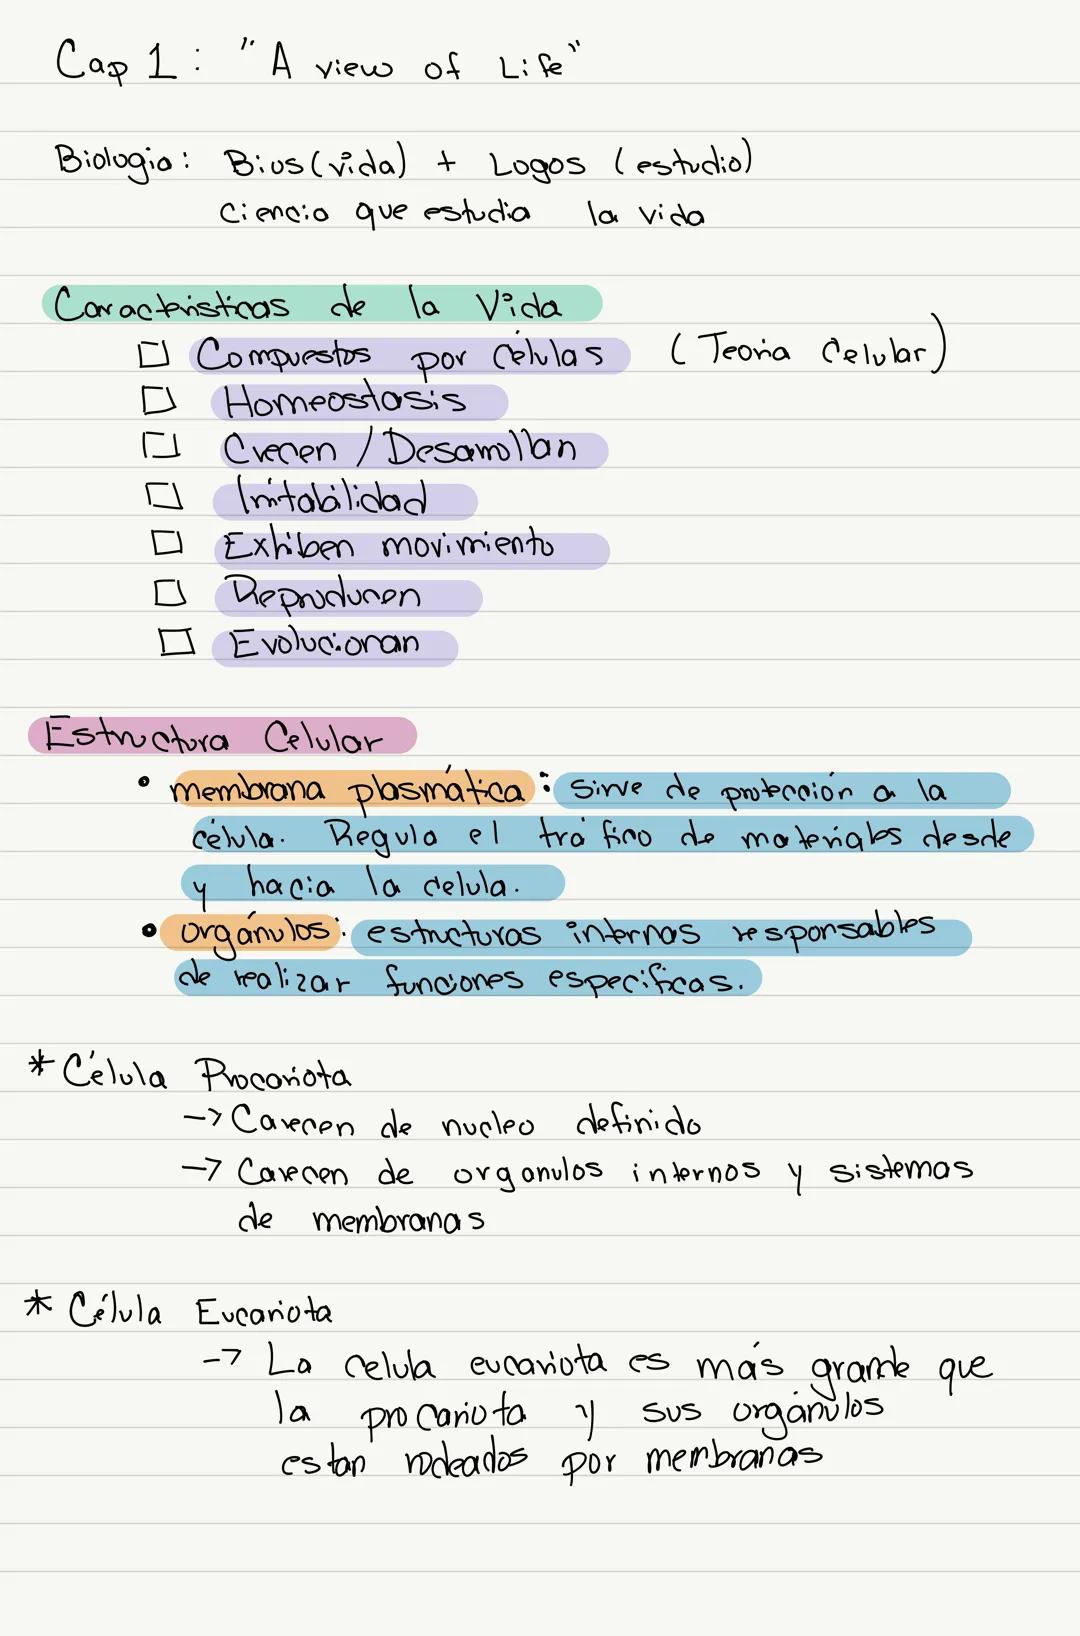 Cap 1: "A view of Life"
Biologia: Bios (vida) + Logos (estudio)
Ciencia que estudia la vida
Caracteristicas de la Vida
☐ Compuestos por Células (Teoria Celular)
☐ Homeostasis
☐ Crecen / Desarrollan
☐ Irritabilidad
☐ Exhiben movimiento
☐ Reproducen
☐ Evolucionan
Estructura Celular
• membrana plasmática: sirve de protección a la
célula. Regula el tráfico de materiales desde
y hacia la celula.
• orgánulos: estructuras internas responsables
de realizar funciones especificas.
* Célula Procariota
-> Carecen de nucleo definido
-> Carecen de organulos internos y sistemas
de membranas
* Célula Eucariota
-> La celula eucariota es más grande que
la procariota y sus orgánulos
estan rodeados por membranas